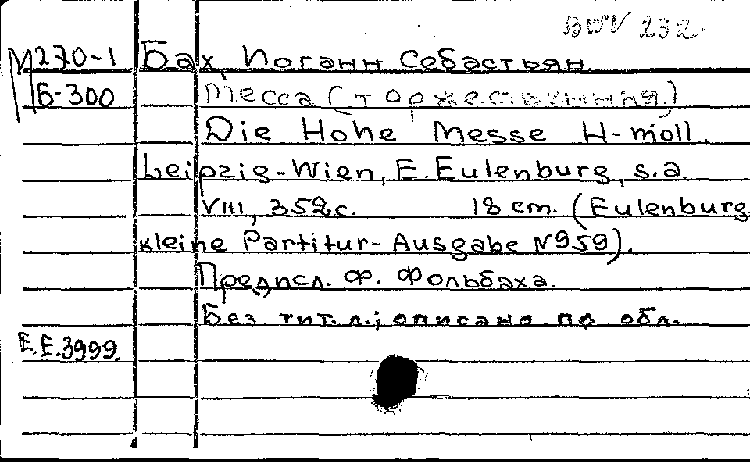 BWV 232
М270-1 Бах, Иоганн Себастьян.
Б-300 Месса (торжественная.)
Die Hohe Messe H-moll.
Leipzig-Wien, E. Eulenburg, s.a
VIII, 352с. 18 cm. (Eulenburg
kleine Partitur-Ausgabe №959).
Предисл. Ф. Фольбаха.
Без тит. л.; описано по обл.
E.E.3999.